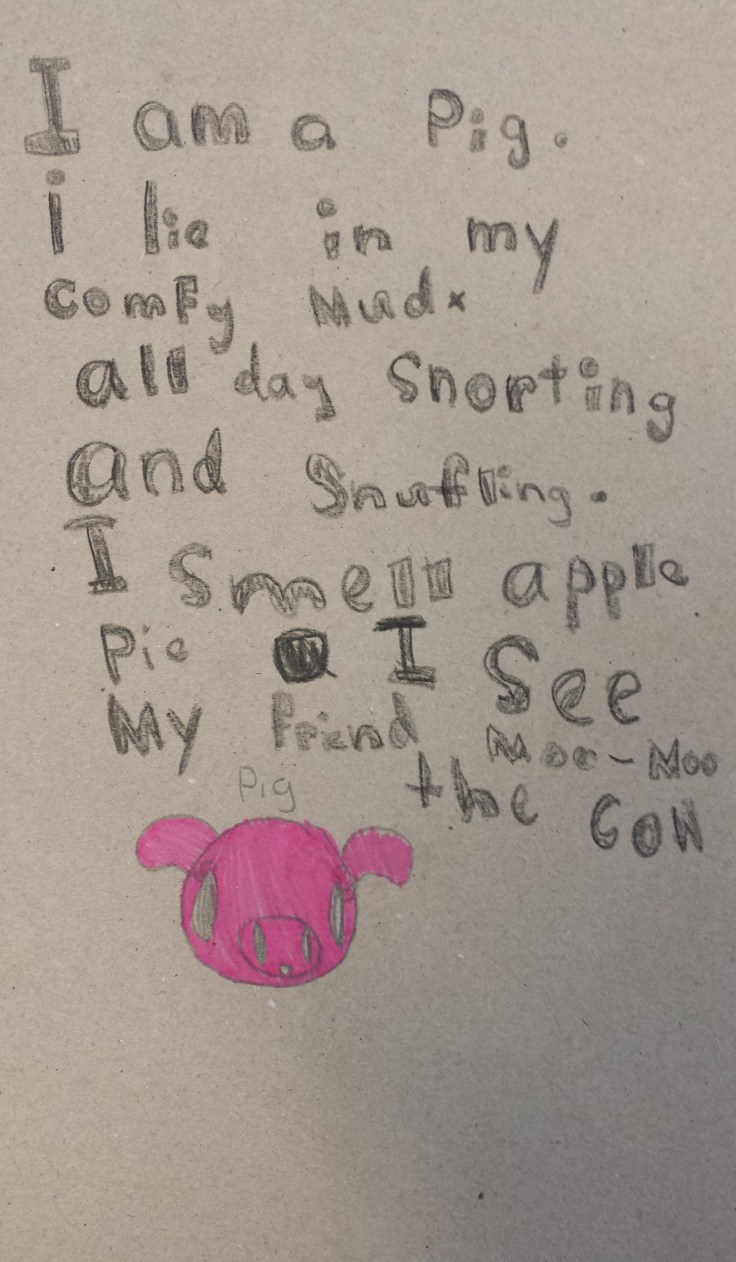 I am a Pig.
i lie in my
comFy Mud
all day Snorting
and Snuffling.
I Smell apple
Pie I See
My friend Moo-Moo
the COW
Pig